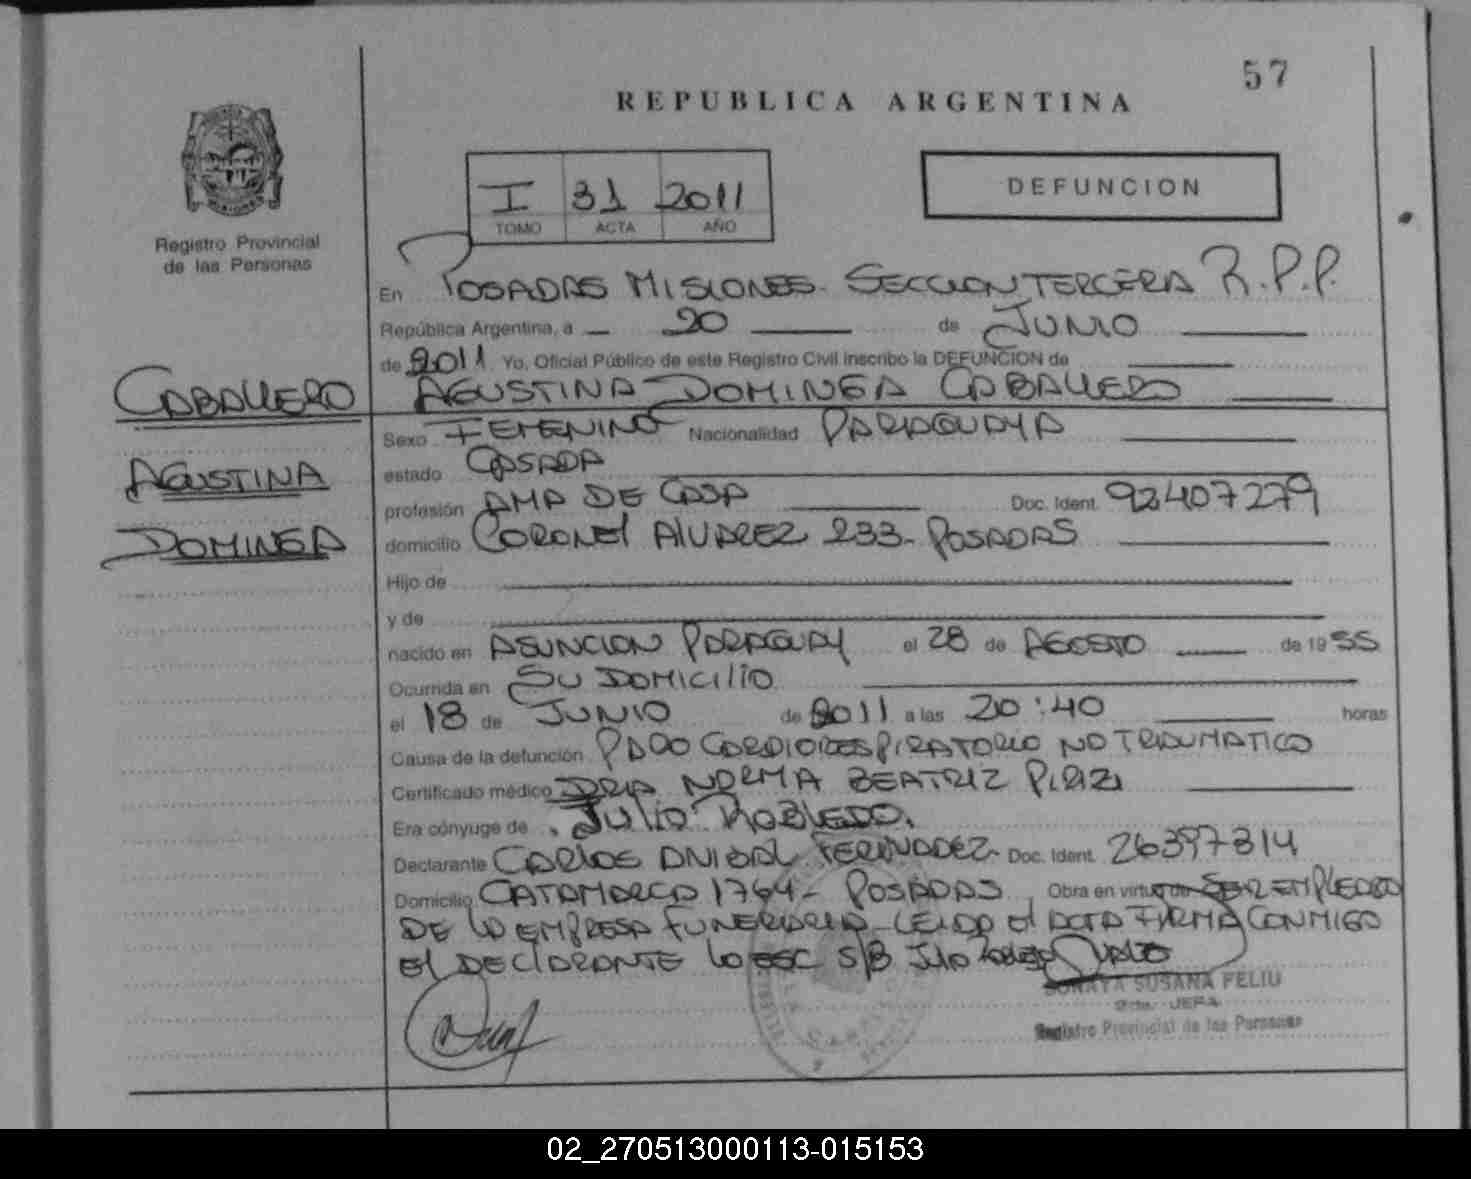 57
REPUBLICA ARGENTINA
I 31 2011
TOMO ACTA AÑO
DEFUNCION
Registro Provincial
de las Personas
En POSADAS MISIONES. SECCION TERCERA R.P.P.
República Argentina, a 20 de JUNIO
de 2011 Yo, Oficial Público de este Registro Civil inscribo la DEFUNCION de
CABALLERO
AGUSTINA DOMINGA CABALLERO
Sexo FEMENINO Nacionalidad PARAGUAYA
AGUSTINA
estado CASADA
profesión AMA DE CASA Doc. Ident. 92407279
DOMINGA
domicilio CORONEL ALVAREZ 233- POSADAS
Hijo de
y de
nacido en ASUNCION PARAGUAY el 28 de AGOSTO de 1955
Ocurrida en SU DOMICILIO
el 18 de JUNIO de 2011 a las 20:40 horas
Causa de la defunción PARO CARDIORESPIRATORIO NO TRAUMATICO
Certificado médico DRA NORMA BEATRIZ
Era cónyuge de JULIO ROBLEDO.
Declarante CARLOS ANIBAL FERNANDEZ- Doc. Ident. 26397314
Domicilio CATAMARCA 1764- POSADAS Obra en virtud de SER EMPLEADO
DE LA EMPRESA FUNERARIA- LEIDA El ACTA FIRMA CONMIGO
El DECLARANTE S/B JULIO ROBLEDO VALE
SORAYA SUSANA FELIU
JEFA
Registro Provincial de las Personas
02_270513000113-015153